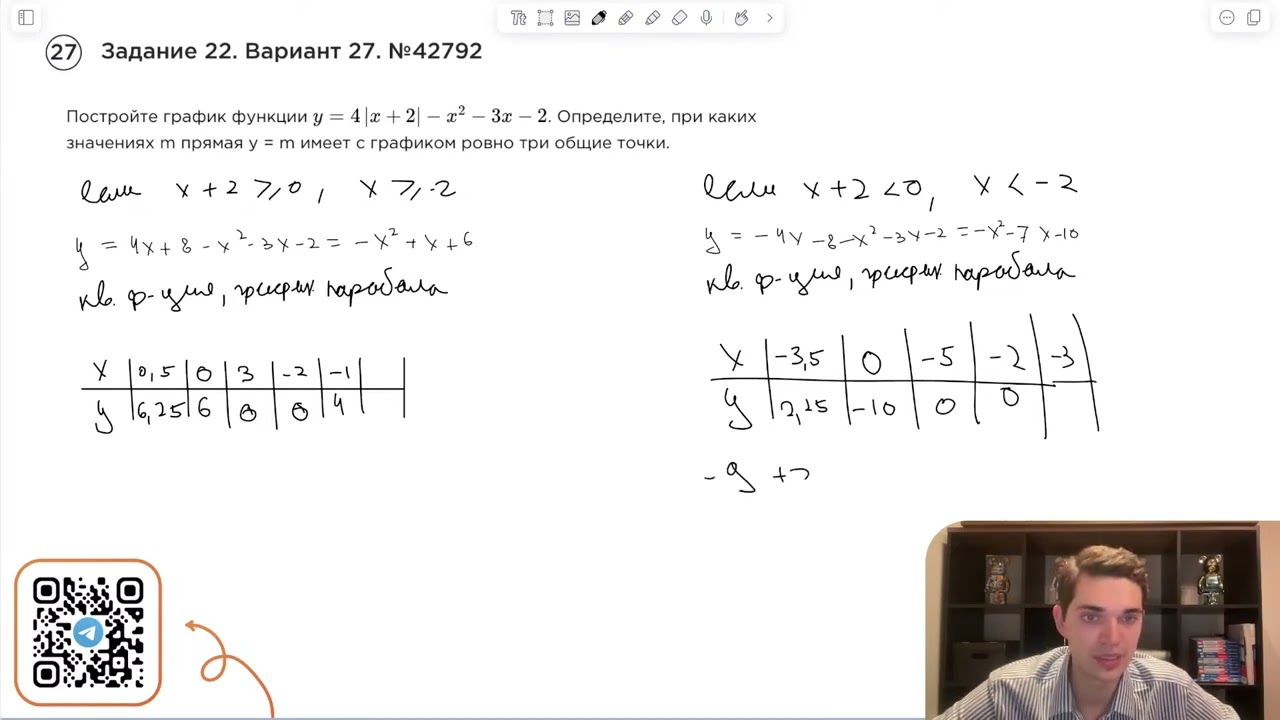 27 Задание 22. Вариант 27. №42792
Постройте график функции y = 4|x + 2| − x² − 3x − 2. Определите, при каких
значениях m прямая y = m имеет с графиком ровно три общие точки.
Если x + 2 ⩾ 0, x ⩾ -2
y = 4x + 8 - x² - 3x - 2 = -x² + x + 6
кв. ф-ция, график парабола
x 0,5 0 3 -2 -1
y 6,25 6 0 0 4
Если x + 2 < 0, x < -2
y = -4x - 8 - x² - 3x - 2 = -x² - 7x - 10
кв. ф-ция, график парабола
x -3,5 0 -5 -2 -3
y 2,25 -10 0 0
-9 +